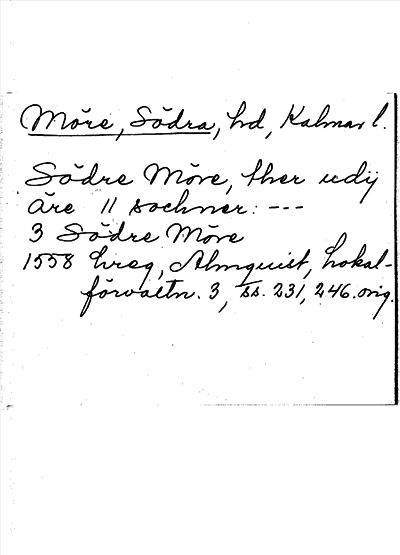 Möre, Södra, hd, Kalmar l.
Södre Möre, ther udij
äre 11 sochner: ---
3 Södre Möre
1558 hreg, Almquist, Lokal-
förvaltn. 3, ss. 231, 246. orig.